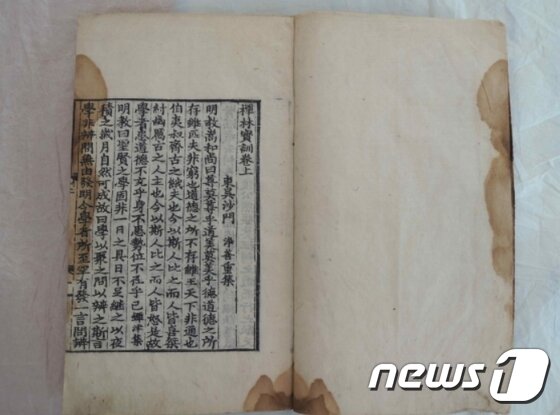 禪林寶訓卷上
東吳沙門 淨善重集
明教嵩和尚曰尊莫尊乎道美莫美乎德道德之所
存雖匹夫非窮也道德之所不存雖王天下非通也
伯夷叔齊古之餓夫也今以斯人比之而人皆喜桀
紂幽厲古之人主也今以斯人比之而人皆怒是故
學者患道德不充乎身不患勢位不在乎己 鐔津集
明教曰聖賢之學固非一日之具日不足繼之以夜
積之歲月自然可成故曰學以聚之問以辨之斯言
學非辨問無由發明今學者所至罕有發一言問辨
news1